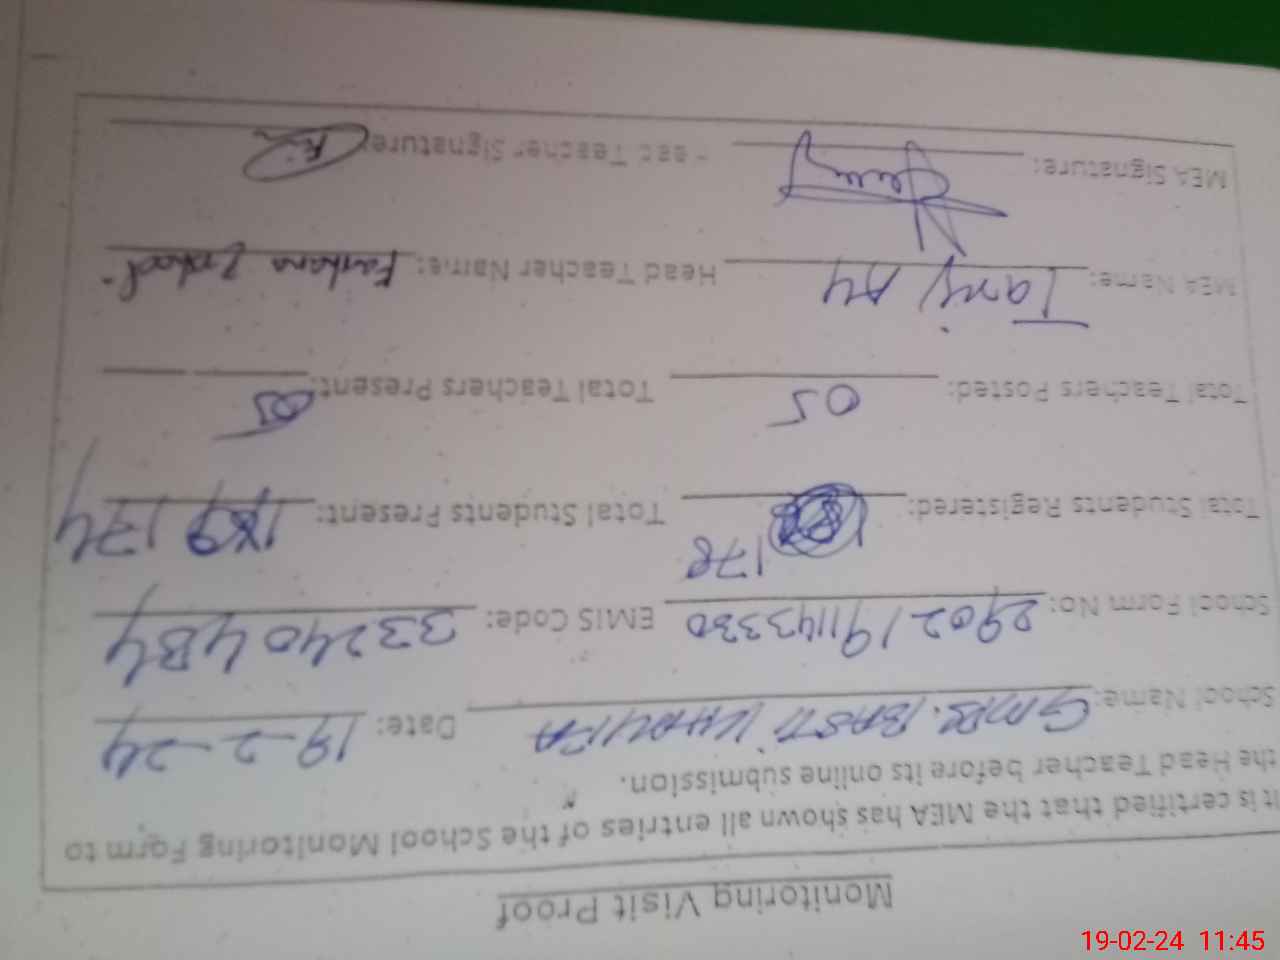 Monitoring Visit Proof
It is certified that the MEA has shown all entries of the School Monitoring Form to
the Head Teacher before its online submission.
School Name: GMPS. BASTI KHALIFA Date: 19-2-24
School Form No: 2902/91143330 EMIS Code: 33240484
178
Total Students Registered: Total Students Present: 174
Total Teachers Posted: 05 Total Teachers Present: 05
MEA Name: Tariq Aly Head Teacher Name: Farhana
MEA Signature: Head Teacher Signature:
19-02-24 11:45